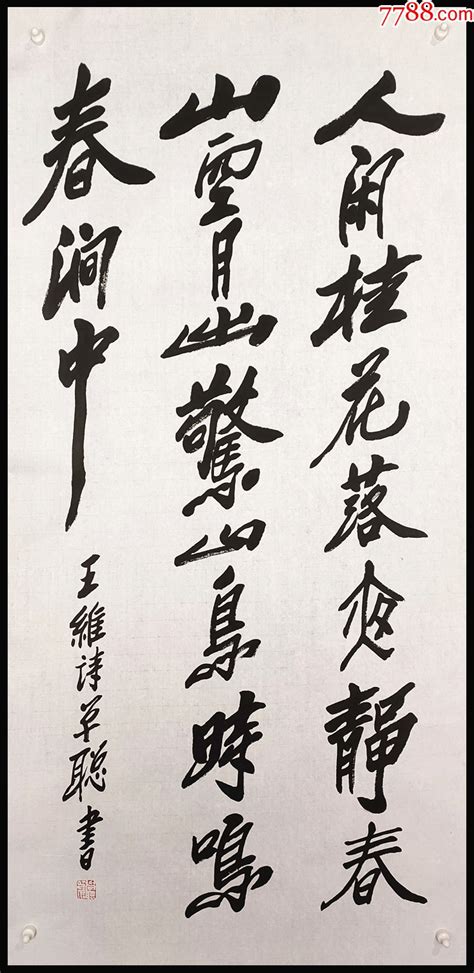 7788.com
人闲桂花落夜靜春
山空月出驚山鳥時鳴
春涧中
王維詩 聪書